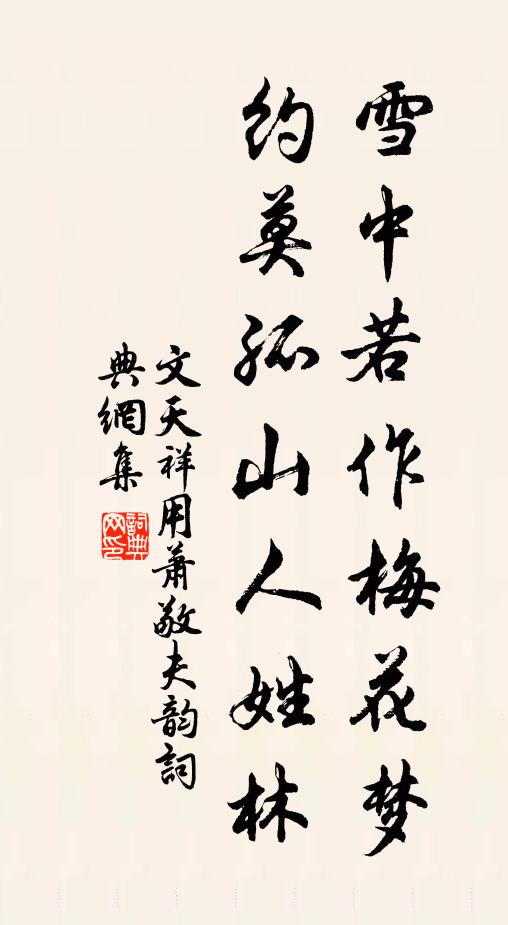 雪中若作梅花梦
约莫孤山人姓林
文天祥用萧敬夫韵詞
典網集
詞典网印